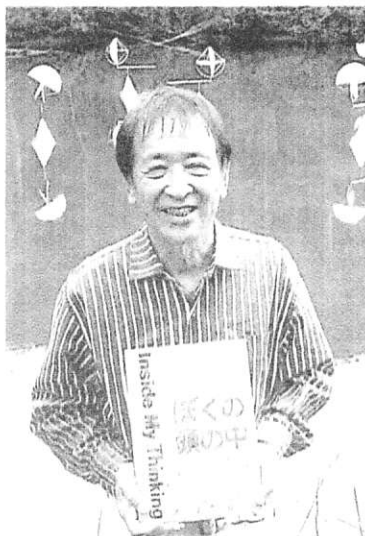 Inside My Thinking
ぼくの
頭の中